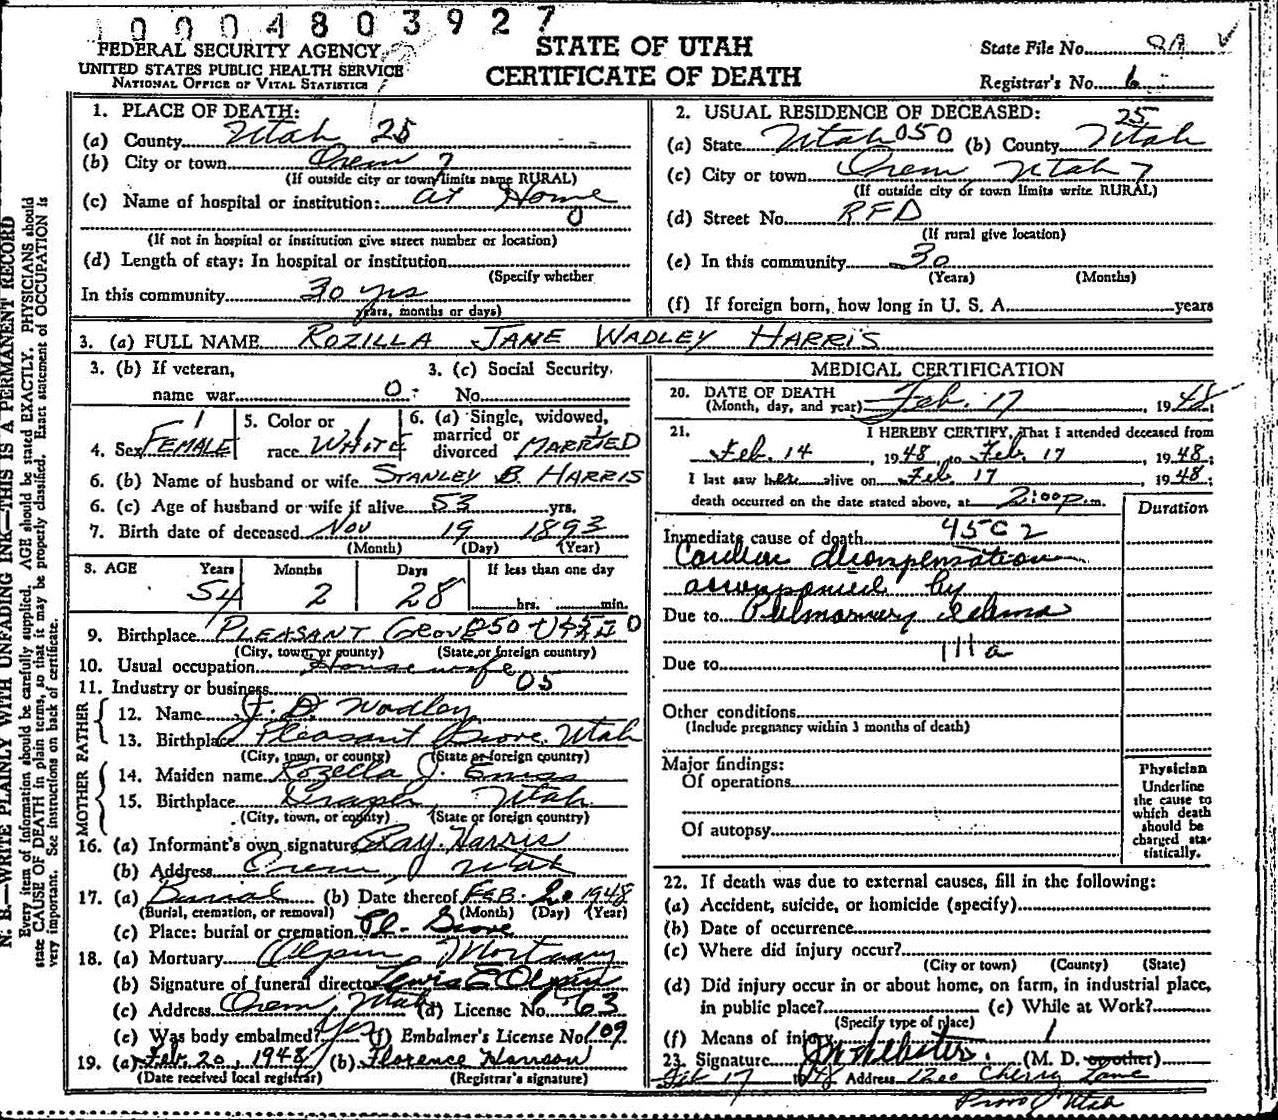 0004803927
FEDERAL SECURITY AGENCY
UNITED STATES PUBLIC HEALTH SERVICE
NATIONAL OFFICE OF VITAL STATISTICS
STATE OF UTAH
CERTIFICATE OF DEATH
State File No.
Registrar's No. 6
N. B.—WRITE PLAINLY WITH UNFADING INK—THIS IS A PERMANENT RECORD
Every item of information should be carefully supplied. AGE should be stated EXACTLY. PHYSICIANS should
state CAUSE OF DEATH in plain terms, so that it may be properly classified. Exact statement of OCCUPATION is
very important. See instructions on back of certificate.
1. PLACE OF DEATH:
(a) County Utah 25
(b) City or town Orem 7
(If outside city or town limits name RURAL)
(c) Name of hospital or institution: at Home
0
(If not in hospital or institution give street number or location)
(d) Length of stay: In hospital or institution
(Specify whether
In this community 30 yrs
years, months or days)
2. USUAL RESIDENCE OF DECEASED:
25
(a) State Utah 050 (b) County Utah
(c) City or town Orem Utah 7
(If outside city or town limits write RURAL)
(d) Street No. RFD
(If rural give location)
(e) In this community 30
(Years) (Months)
(f) If foreign born, how long in U. S. A. years
3. (a) FULL NAME ROZILLA JANE WADLEY HARRIS
3. (b) If veteran, name war 0
3. (c) Social Security No.
4. Sex FEMALE 1
5. Color or race WHITE 1
6. (a) Single, widowed, married or divorced MARRIED
6. (b) Name of husband or wife STANLEY B. HARRIS
6. (c) Age of husband or wife if alive 53 yrs.
7. Birth date of deceased Nov 19 1893
(Month) (Day) (Year)
8. AGE Years Months Days If less than one day
54 2 28 hrs. min.
9. Birthplace PLEASANT GROVE 050 UTAH 0
(City, town, or county) (State or foreign country)
10. Usual occupation Housewife
11. Industry or business 05
FATHER
12. Name J. D. Wadley
13. Birthplace Pleasant Grove, Utah
(City, town, or county) (State or foreign country)
MOTHER
14. Maiden name Rozella J.
15. Birthplace Draper, Utah
(City, town, or county) (State or foreign country)
16. (a) Informant's own signature Ray Harris
(b) Address Orem, Utah
17. (a) Burial (b) Date thereof FEB. 20 1948
(Burial, cremation, or removal) (Month) (Day) (Year)
(c) Place: burial or cremation Pl. Grove
18. (a) Mortuary Olpin Mortuary
(b) Signature of funeral director Lewis E Olpin
(c) Address Orem, Utah (d) License No. 63
(e) Was body embalmed? Yes (f) Embalmer's License No. 109
19. (a) Feb. 20, 1948 (b) Florence Hanson
(Date received local registrar) (Registrar's signature)
MEDICAL CERTIFICATION
20. DATE OF DEATH
(Month, day, and year) Feb. 17, 1948
21. I HEREBY CERTIFY, That I attended deceased from
Feb. 14, 1948, to Feb. 17, 1948;
I last saw her alive on Feb 17, 1948;
death occurred on the date stated above, at 2:00 p.m.
Duration
Immediate cause of death 45C2
Cardiac decompensation
accompanied by
Due to Pulmonary edema
111a
Due to
Other conditions
(Include pregnancy within 3 months of death)
Major findings:
Of operations
Of autopsy
Physician
Underline
the cause to
which death
should be
charged sta-
tistically.
22. If death was due to external causes, fill in the following:
(a) Accident, suicide, or homicide (specify)
(b) Date of occurrence
(c) Where did injury occur?
(City or town) (County) (State)
(d) Did injury occur in or about home, on farm, in industrial place,
in public place? (e) While at Work?
(Specify type of place)
(f) Means of injury 1
23. Signature Webster. (M. D. or other)
Feb 17 1948 Address 1200 Cherry Lane
Provo, Utah